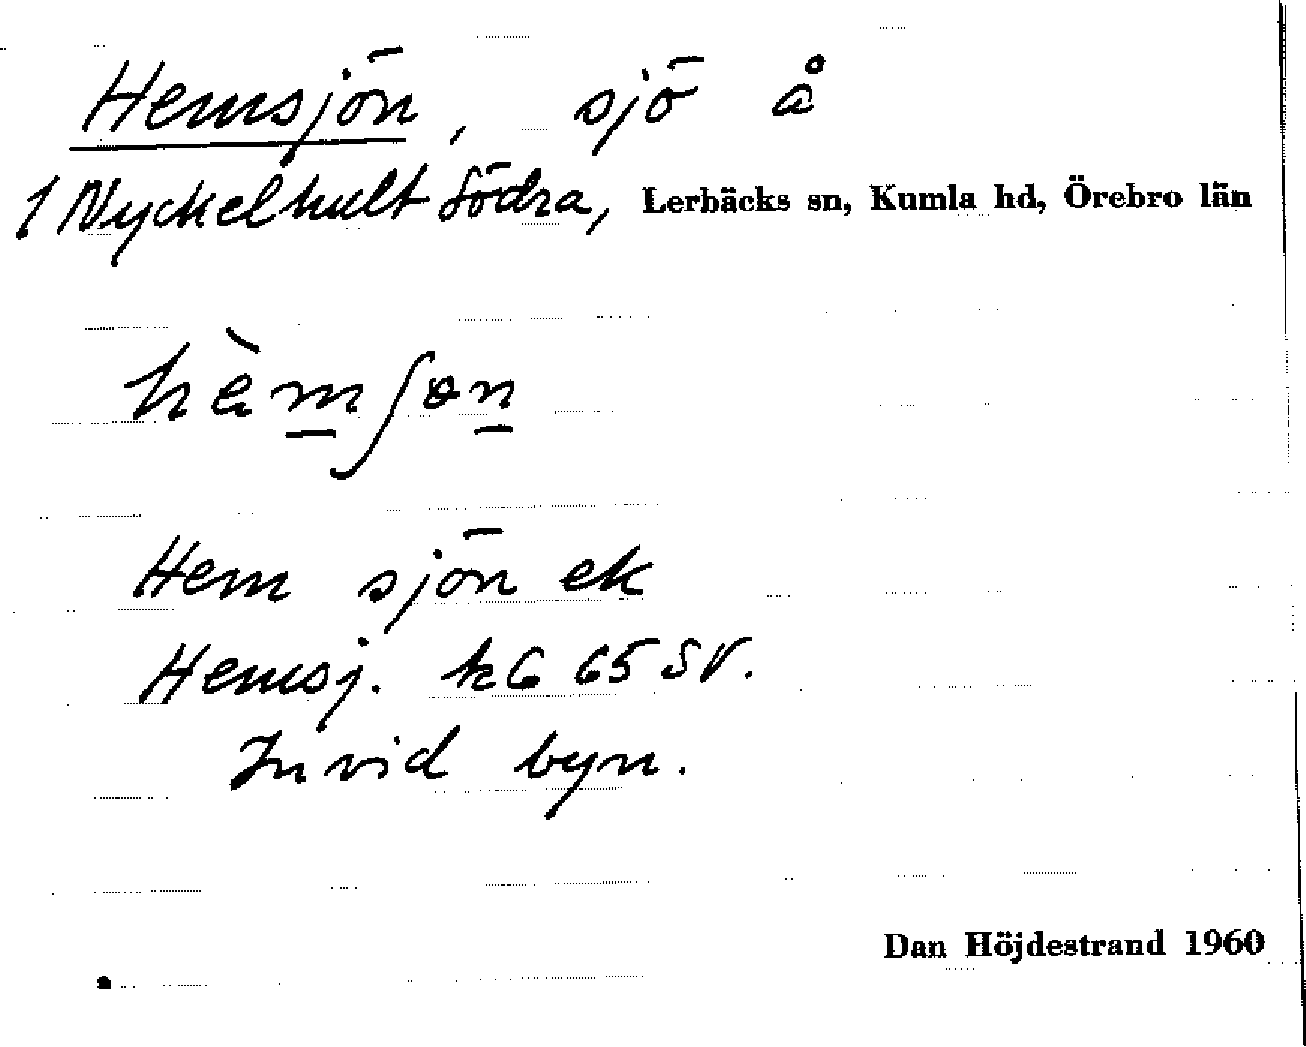 Hemsjön, sjö å
1 Nyckelhult Södra, Lerbäcks sn, Kumla hd, Örebro län
hèmʃɵn
Hem sjön ek
Hemsj. k6 65 SV.
Invid byn.
Dan Höjdestrand 1960